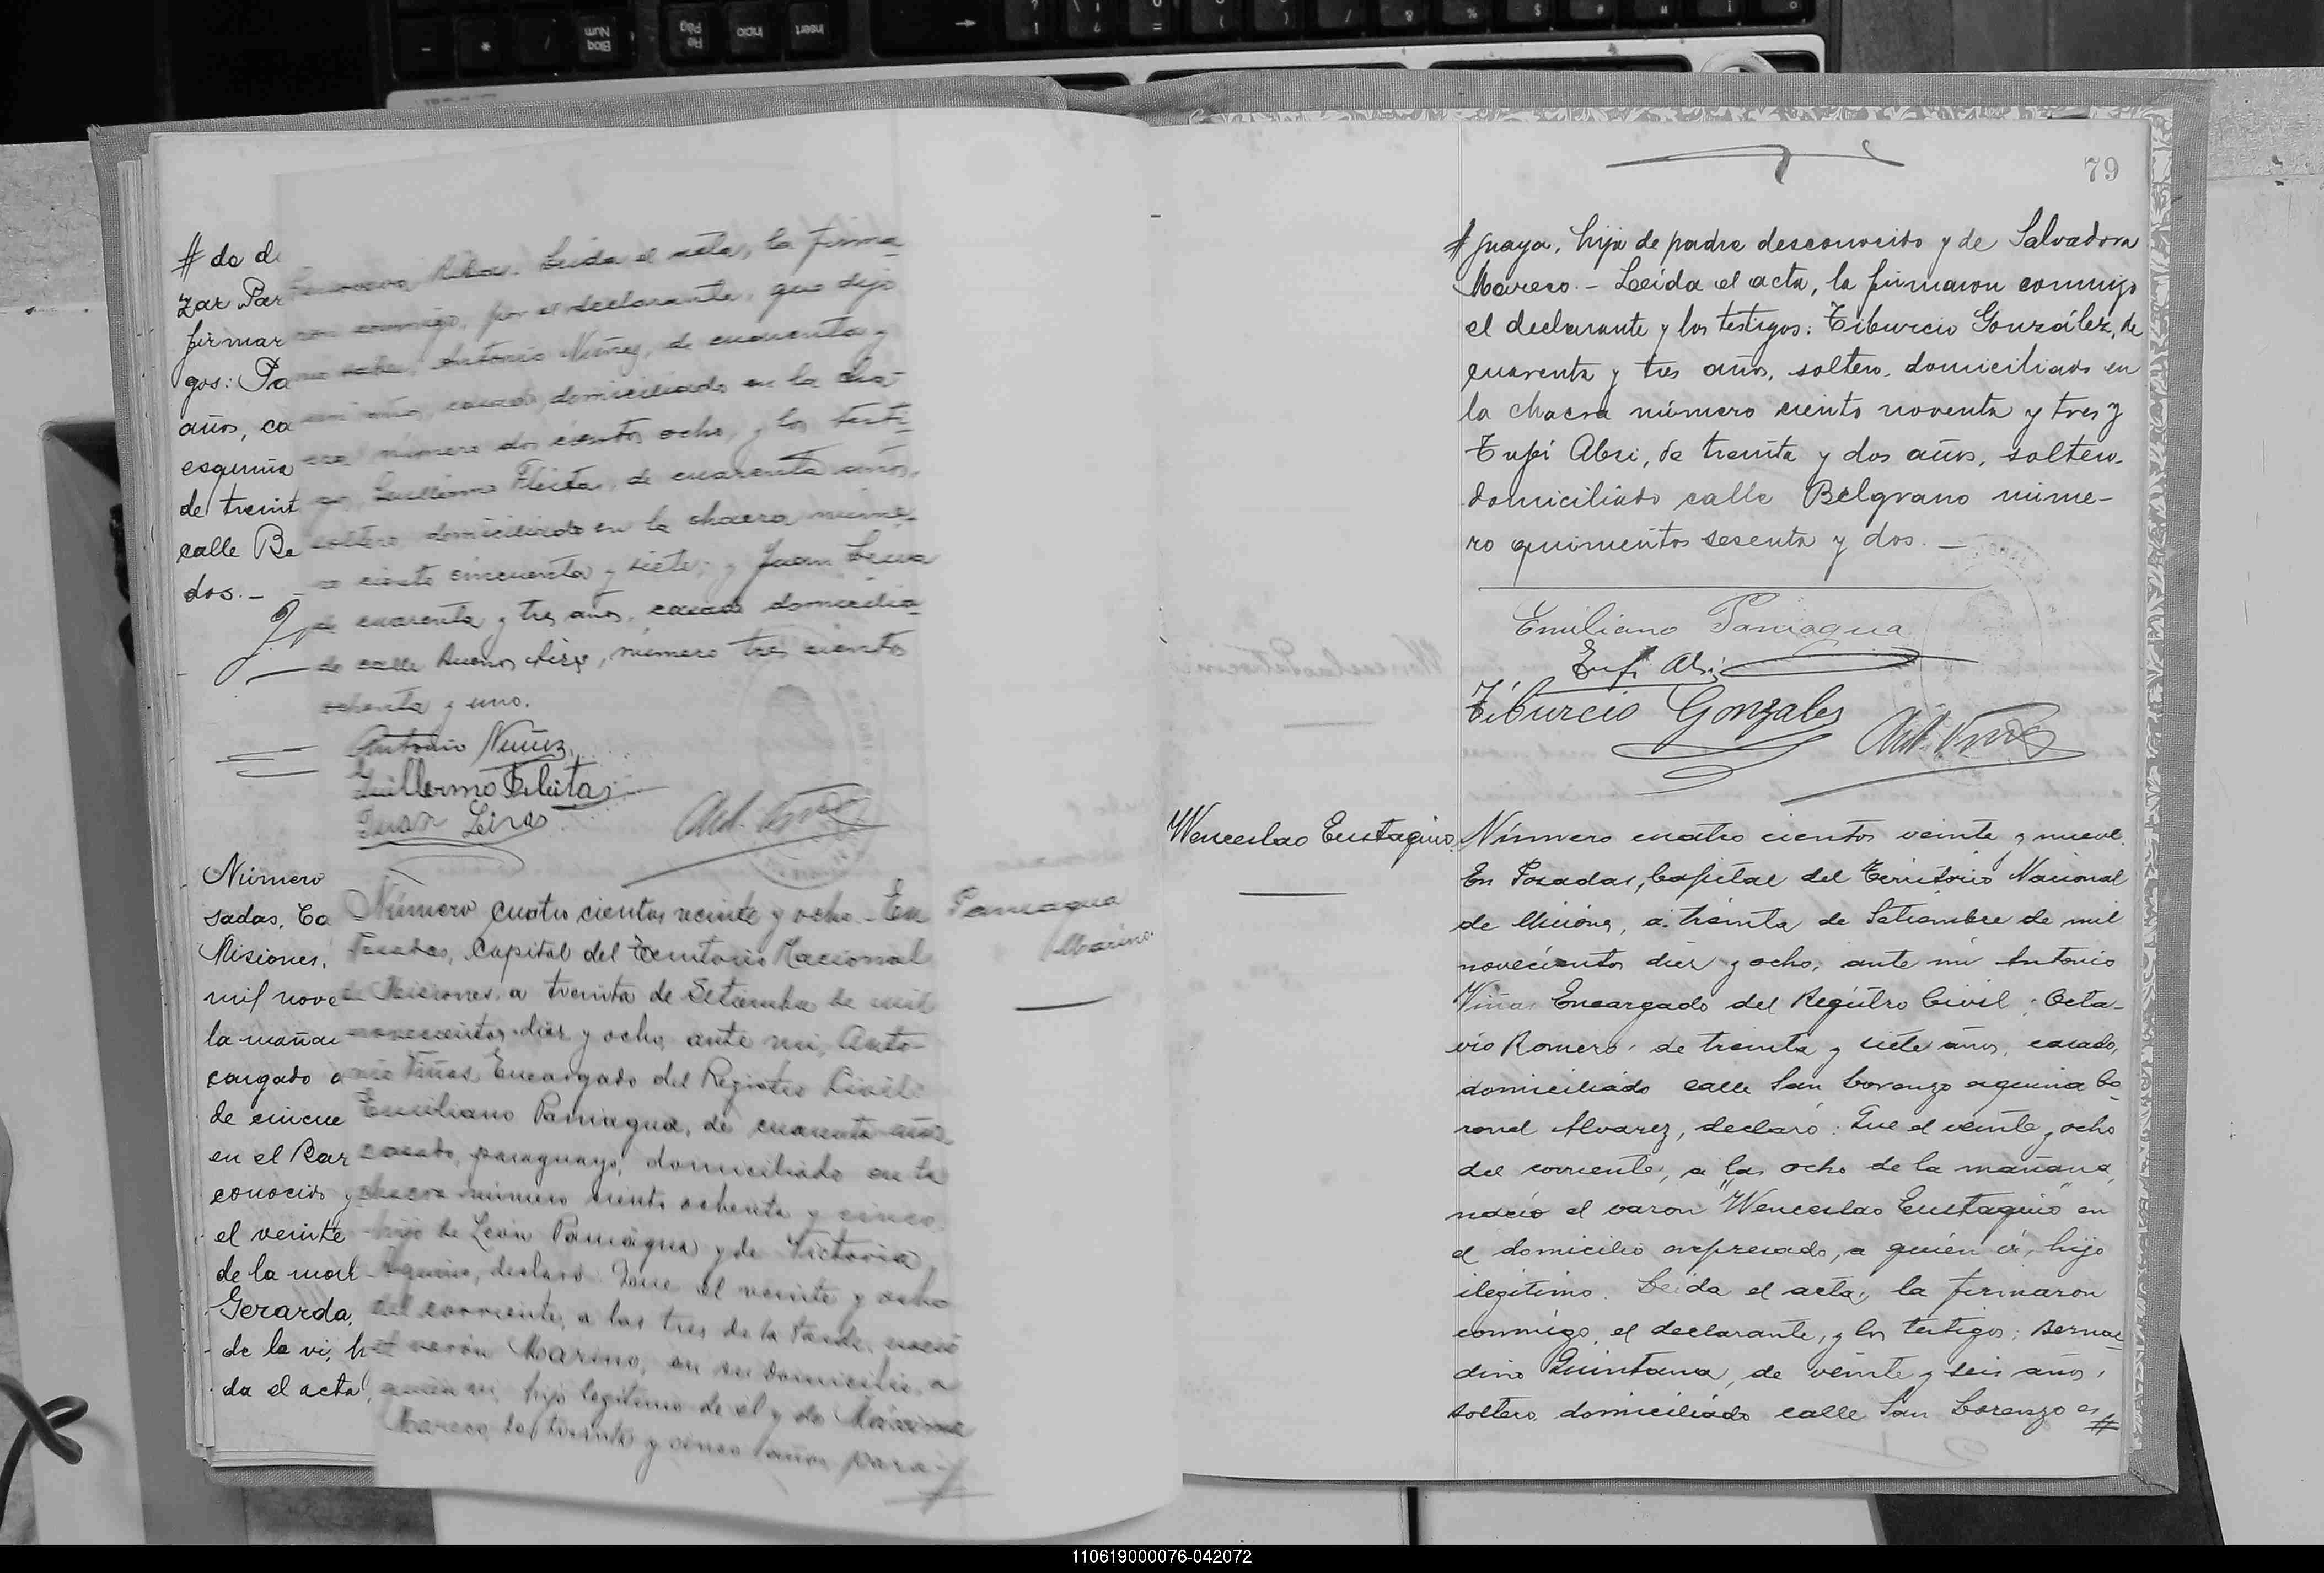 # de de
zar Par
firmar
gos: Pa
años, ca
esquina
de treint
calle Be
dos. —
Número
sadas, Ca
Misiones,
mil nove
la mañan
cargado
de cincue
en el Bar
conocido y
el veinte
de la mad
Gerarda,
de la vi, h
da el acta
Riba. Leida el acta, la firma-
ron conmigo, por el declarante, que dijo
no saber, Antonio Nuñez, de cuarenta y
años, casado, domiciliado en la cha-
cra número dos cientos ocho, y los testi-
gos, Guillermo Fleitas, de cuarenta años,
soltero, domiciliado en la chacra núme-
ro ciento cincuenta y siete, y Juan Leiva
de cuarenta y tres años, casado domicilia-
do calle Buenos Aires, número tres cientos
ochenta y uno.
Antonio Nuñez
Guillermo Fleitas
Juan Leiva
Paniagua
Marino.
Número cuatro cientos veinte y ocho. En
Posadas, Capital del Territorio Nacional
de Misiones, a treinta de Setiembre de mil
novecientos diez y ocho, ante mi, Anto-
nio Viñas, Encargado del Registro Civil:
Emiliano Paniagua, de cuarenta años
casado, paraguayo, domiciliado en la
chacra número ciento ochenta y cinco,
hijo de León Paniagua y de Victoria
Aquino, declaró: Que el veinte y ocho
del corriente, a las tres de la tarde, nació
el varón Marino, en su domicilio, a
quien vi, hijo legítimo de él y de Máxima
Mareco, de treinta y cinco años, para-#
79
# guaya, hija de padre desconocido y de Salvadora
Mareco. - Leída el acta, la firmaron conmigo
el declarante y los testigos: Tiburcio González, de
cuarenta y tres años, soltero, domiciliado en
la chacra número ciento noventa y tres y
Eufi Abri, de treinta y dos años, soltero,
domiciliado calle Belgrano núme-
ro quinientos sesenta y dos. —
Emiliano Paniagua
Eufi Abri
Tiburcio Gonzales
Wenceslao Eustaquio
Número cuatro cientos veinte y nueve.
En Posadas, Capital del Territorio Nacional
de Misiones, a treinta de Setiembre de mil
novecientos diez y ocho, ante mí Antonio
Viñas Encargado del Registro Civil: Octa-
vio Romero, de treinta y siete años, casado,
domiciliado calle San Lorenzo esquina Co-
ronel Alvarez, declaró: Que el veinte y ocho
del corriente, a las ocho de la mañana,
nació el varon "Wenceslao Eustaquio" en
el domicilio expresado, a quién ví, hijo
ilegítimo. Leida el acta, la firmaron
conmigo, el declarante, y los testigos: Bernar-
dino Quintana, de veinte y seis años,
soltero, domiciliado calle San Lorenzo es #
110619000076-042072